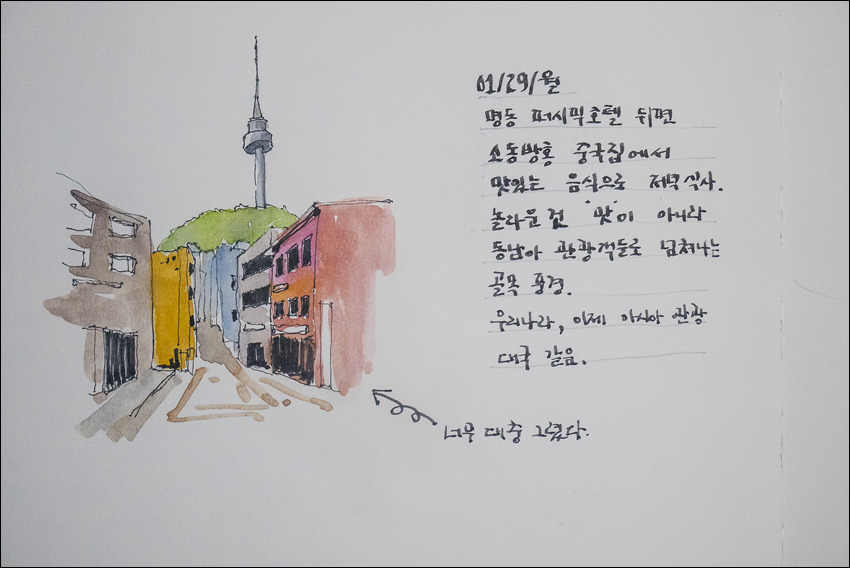 01/29/월
명동 퍼시픽호텔 뒤편
소동방홍 중국집에서
맛있는 음식으로 저녁식사.
놀라운 것 "맛"이 아니라
동남아 관광객들로 넘쳐나는
골목 풍경.
우리나라, 이제 아시아 관광
대국 같음.
너무 대충 그렸다.